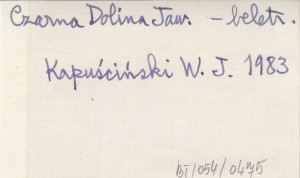 Czarna Dolina Jaw. – beletr.
Kapuściński W. J. 1983
DT/054/0475